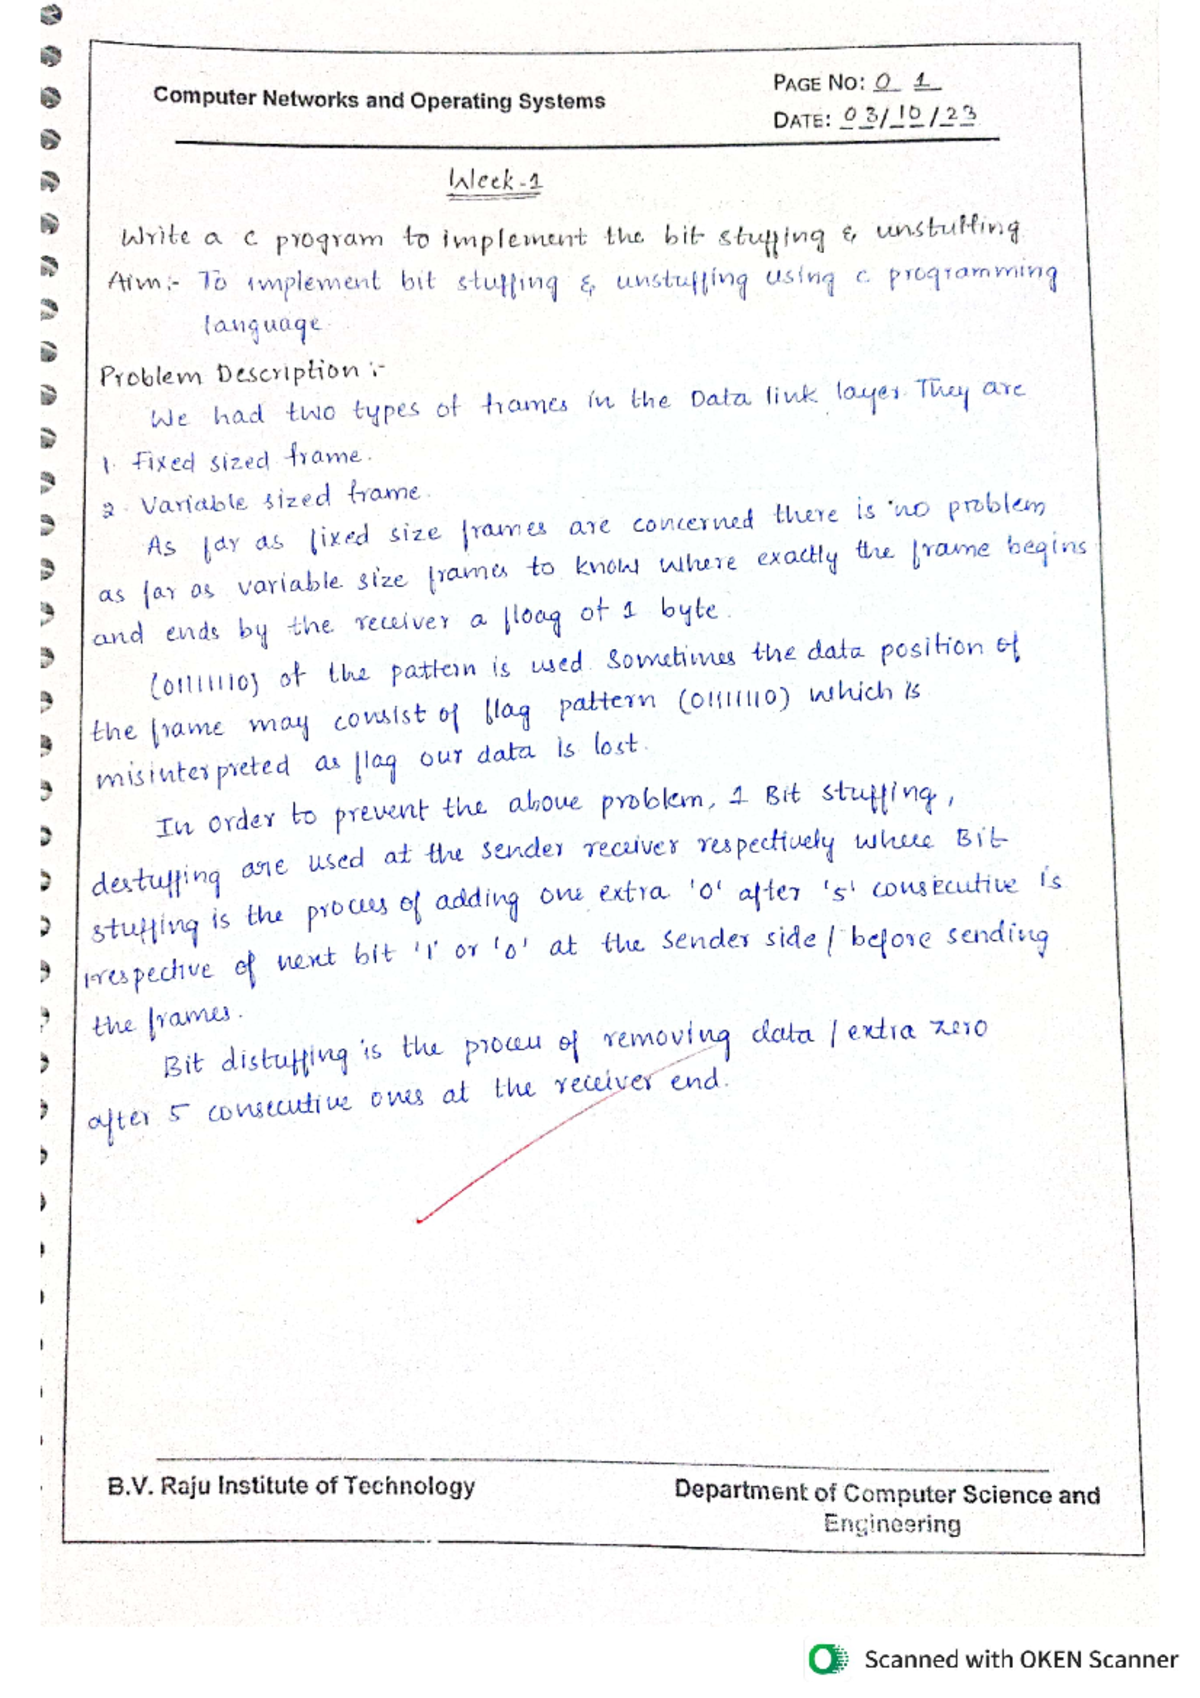 Computer Networks and Operating Systems
PAGE NO: 0 1
DATE: 03/10/23
Week-1
Write a c program to implement the bit stuffing & unstuffing
Aim:- To implement bit stuffing & unstuffing using c programming
language.
Problem Description :-
We had two types of frames in the Data link layer. They are
1. Fixed sized frame.
2. Variable sized frame.
As far as fixed size frames are concerned there is no problem
as far as variable size frames to know where exactly the frame begins
and ends by the receiver a floag of 1 byte.
(01111110) of the pattern is used. Sometimes the data position of
the frame may consist of flag pattern (01111110) which is
misinterpreted as flag our data is lost.
In order to prevent the above problem, 1 Bit stuffing,
destuffing are used at the sender receiver respectively where Bit
stuffing is the process of adding one extra '0' after '5' consecutive is
irrespective of next bit '1' or '0' at the sender side / before sending
the frames.
Bit distuffing is the process of removing data / extra zero
after 5 consecutive ones at the receiver end.
B.V. Raju Institute of Technology
Department of Computer Science and
Engineering
Scanned with OKEN Scanner